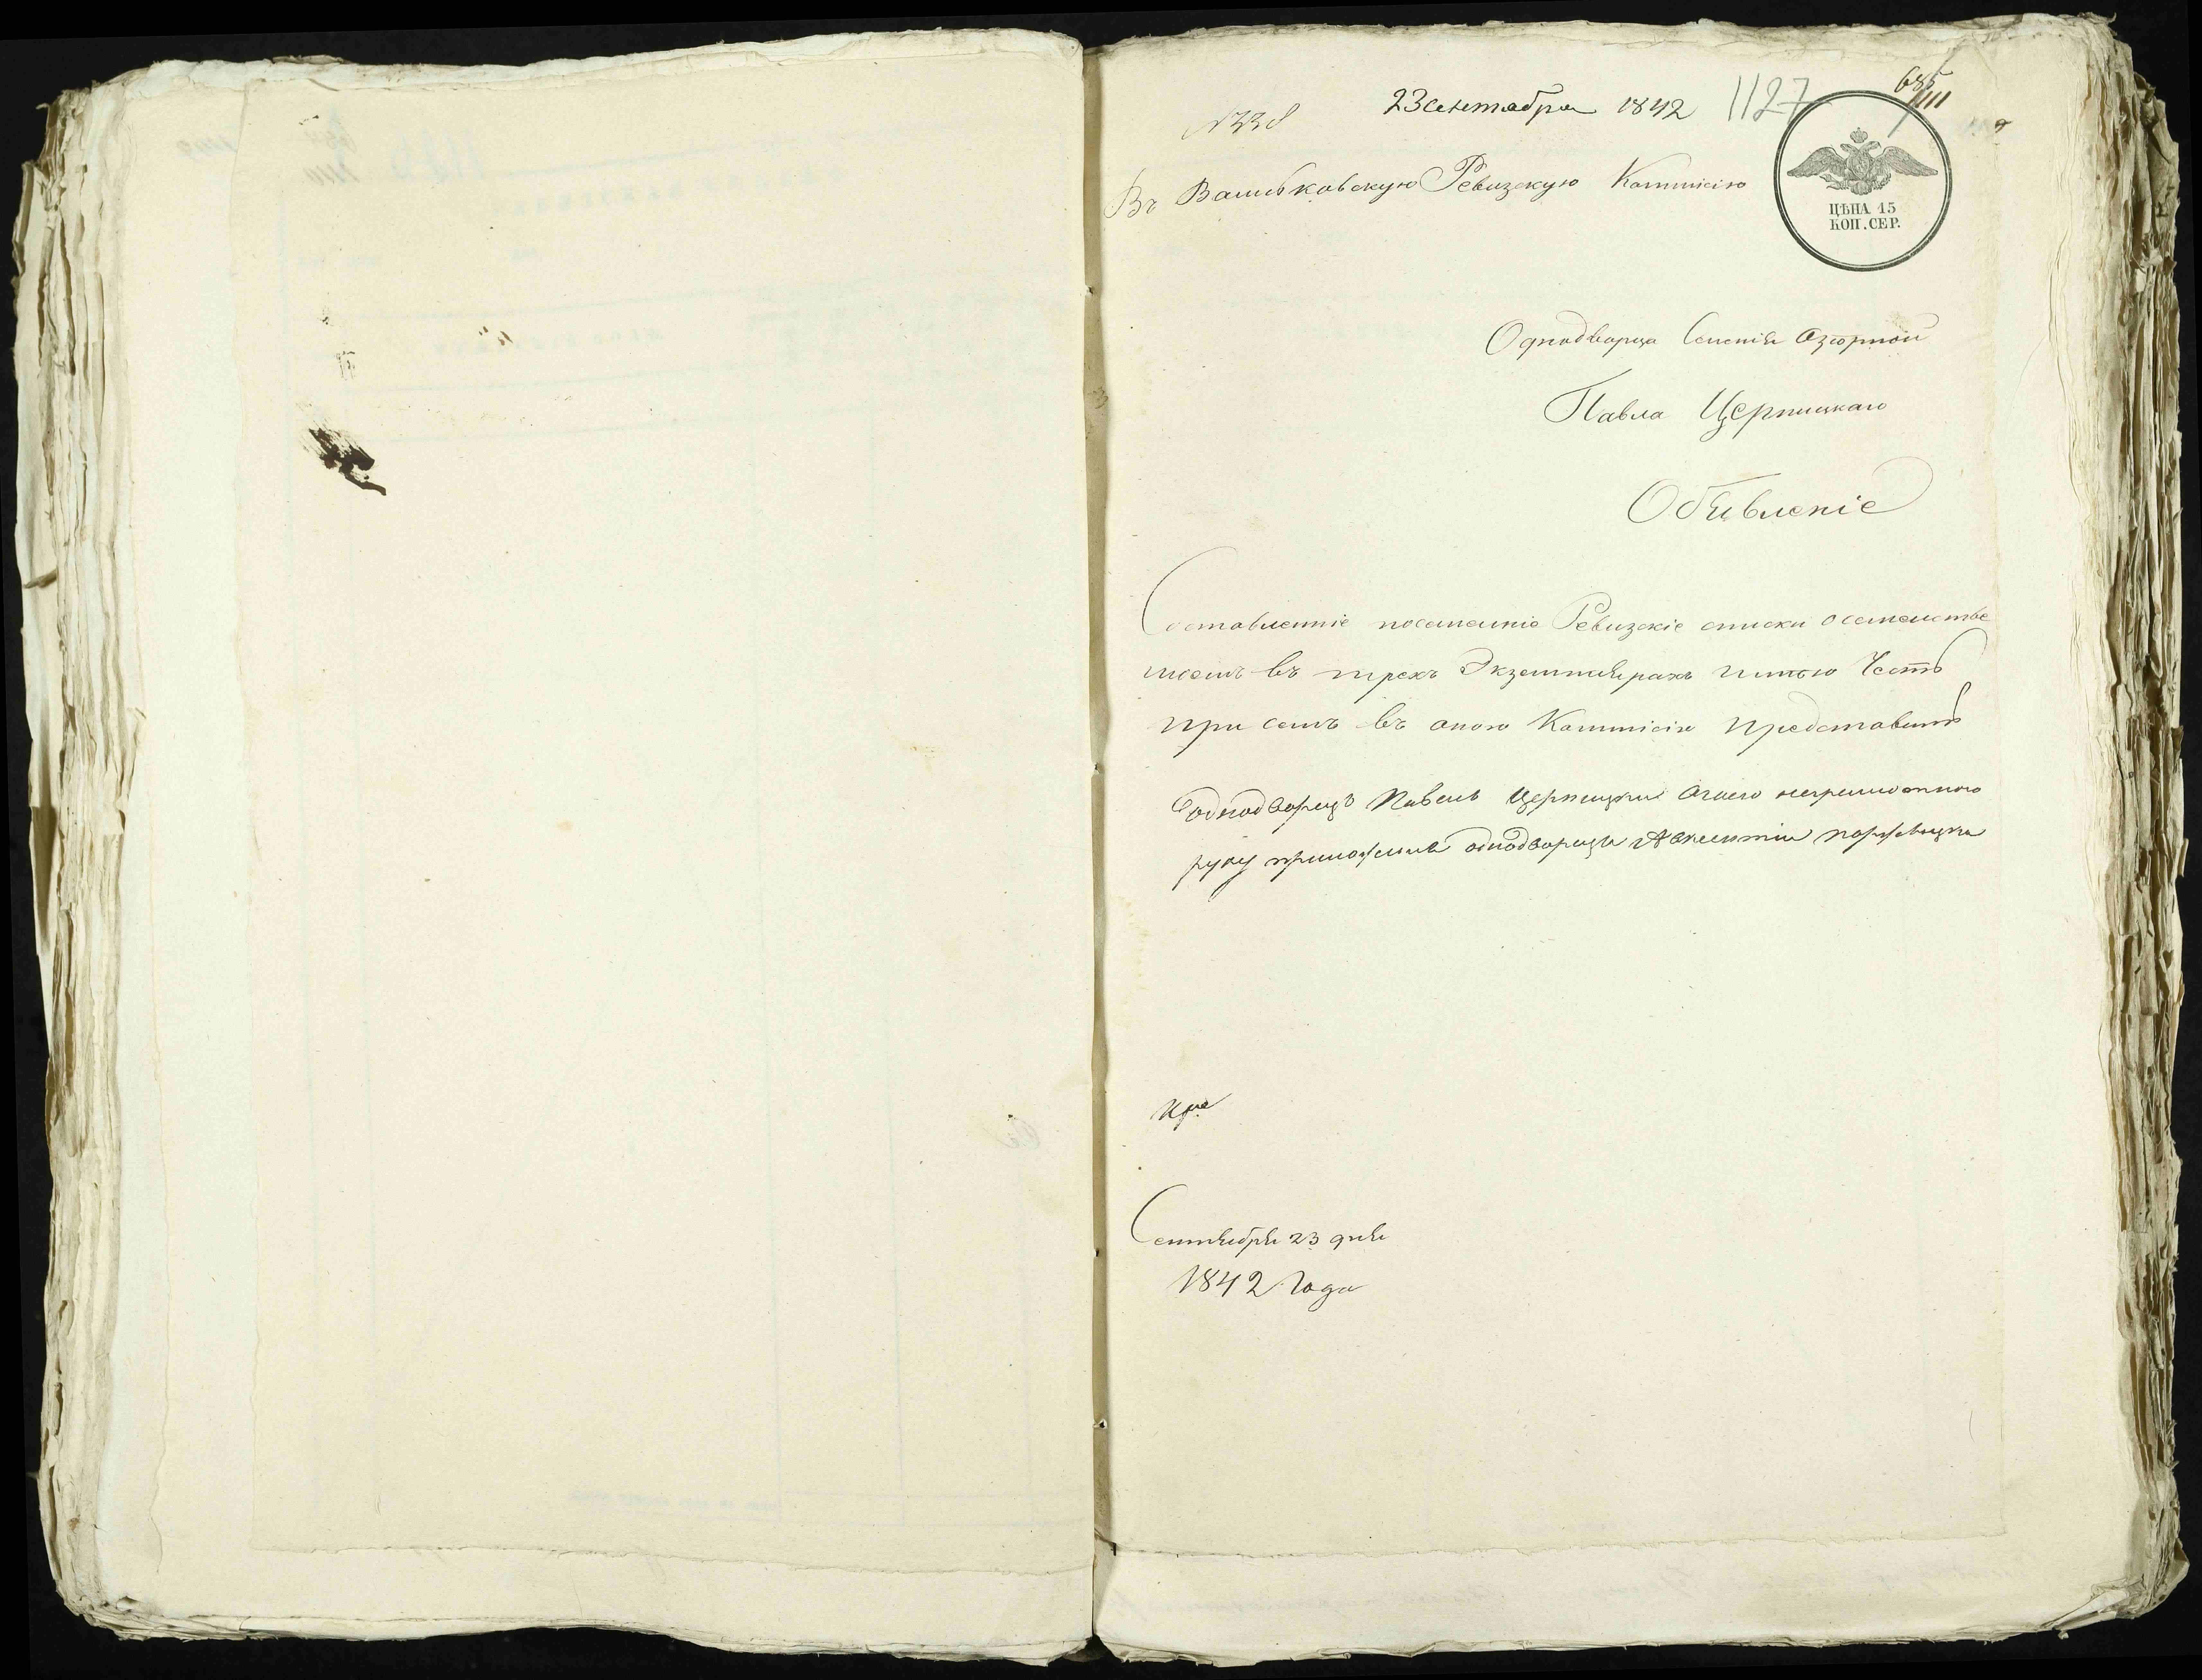 23 Сентабра 1842
1127
685
№ 338
Въ Васильковскую Ревизскую Коммисію
ЦѢНА 15
КОП. СЕР.
Однодворца Селенія Озюрной
Павла Церницкаго
Обявленіе
Составленніе посеменніе Ревизскіе списки осемействе
моемъ въ трехъ Экземплярахъ имѣю Честь
при семъ въ оною Коммисію представить
однодворецъ Павелъ Церницки онаго неграмотного
руку приложилъ однодворецъ
Сентября 23 дня
1842 Года